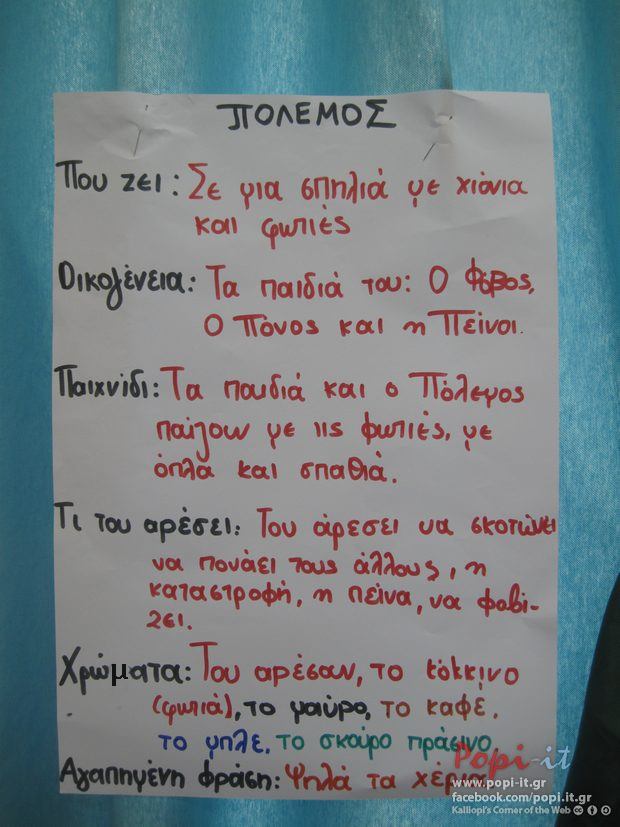 ΠΟΛΕΜΟΣ
Που ζει: Σε μια σπηλιά με χιόνια
και φωτιές
Οικογένεια: Τα παιδιά του: Ο Φόβος,
Ο Πόνος και η Πείνα.
Παιχνίδι: Τα παιδιά και ο Πόλεμος
παίζουν με τις φωτιές, με
όπλα και σπαθιά.
Τι του αρέσει: Του άρεσει να σκοτώνει
να πονάει τους άλλους, η
καταστροφή, η πείνα, να φοβί-
ζει.
Χρώματα: Του αρέσαν, το κόκκινο
(φωτιά), το μαύρο, το καφέ,
το μπλε, το σκούρο πράσινο
Αγαπημένη φράση: Ψηλά τα χέρια
Popi-it
www.popi-it.gr
facebook.com/popi.it.gr
Kalliopi's Corner of the Web